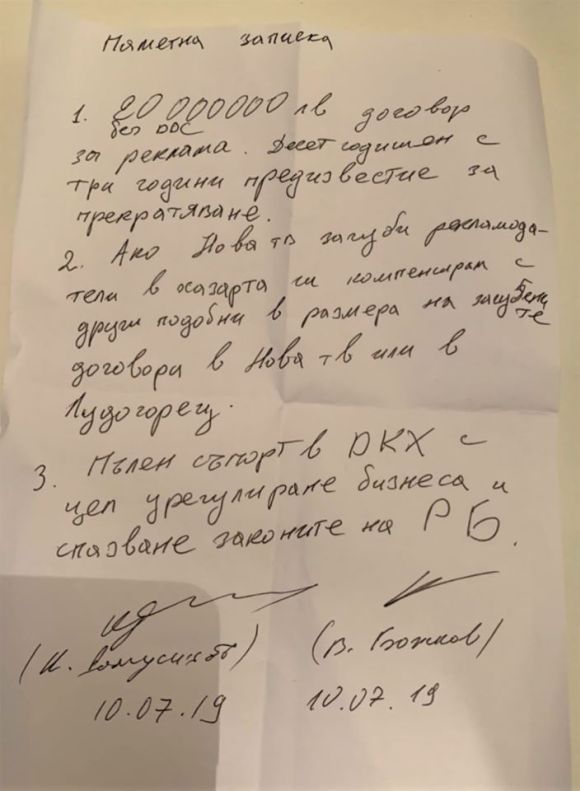 Паметна записка
1. 20 000 000 лв договор
без ДДС
за реклама. Десетгодишен с
три години предизвестие за
прекратяване.
2. Ако Нова тв загуби рекламода-
тели в хазарта ги компенсирам с
други подобни в размера на загубените
договори в Нова тв или в
Лудогорец.
3. Пълен съпорт в ДКХ с
цел урегулиране бизнеса и
спазване законите на РБ.
(К. Домусчиев) (В. Божков)
10.07.19 10.07.19